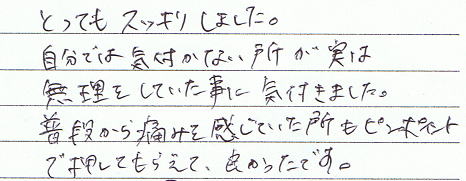 とってもスッキリしました。
自分では気付かない所が実は
無理をしていた事に気付きました。
普段から痛みを感じていた所もピンポイント
で押してもらえて、良かったです。